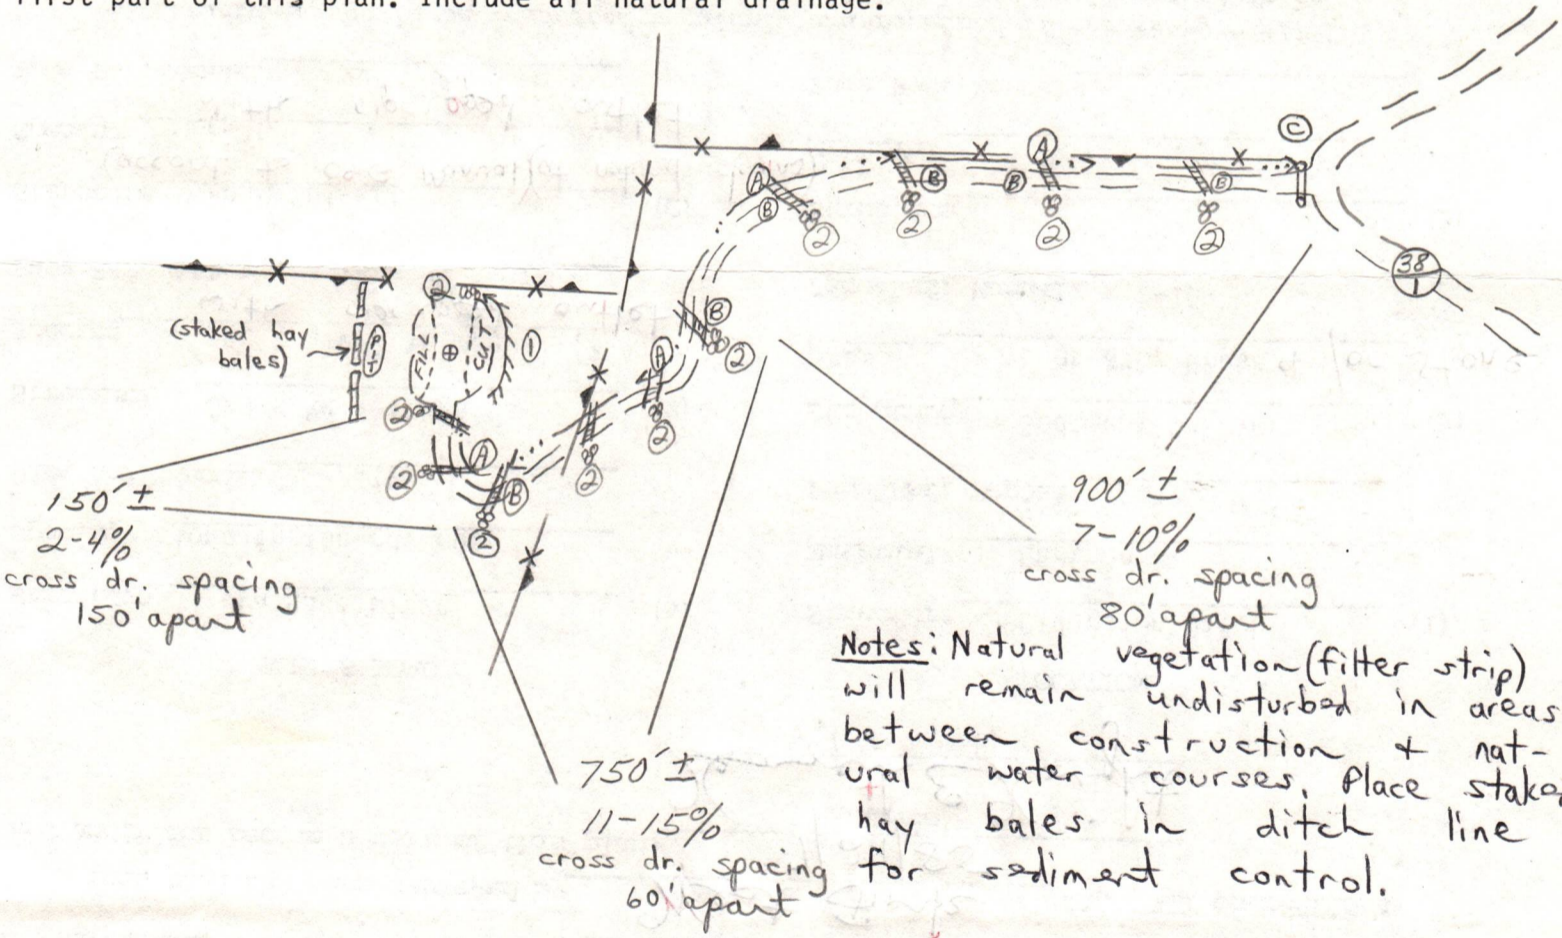 first part of this plan. Include all natural drainage.
C
A
B
B
B
A
B
2
2
2
2
38
1
2
(staked hay
bales)
PIT
FILL
CUT
1
B
2
A
2
2
2
A
2
B
2
150' ±
2-4%
cross dr. spacing
150' apart
900' ±
7-10%
cross dr. spacing
80' apart
750' ±
11-15%
cross dr. spacing
60' apart
Notes: Natural vegetation (filter strip)
will remain undisturbed in areas
between construction + nat-
ural water courses. Place staked
hay bales in ditch line
for sediment control.